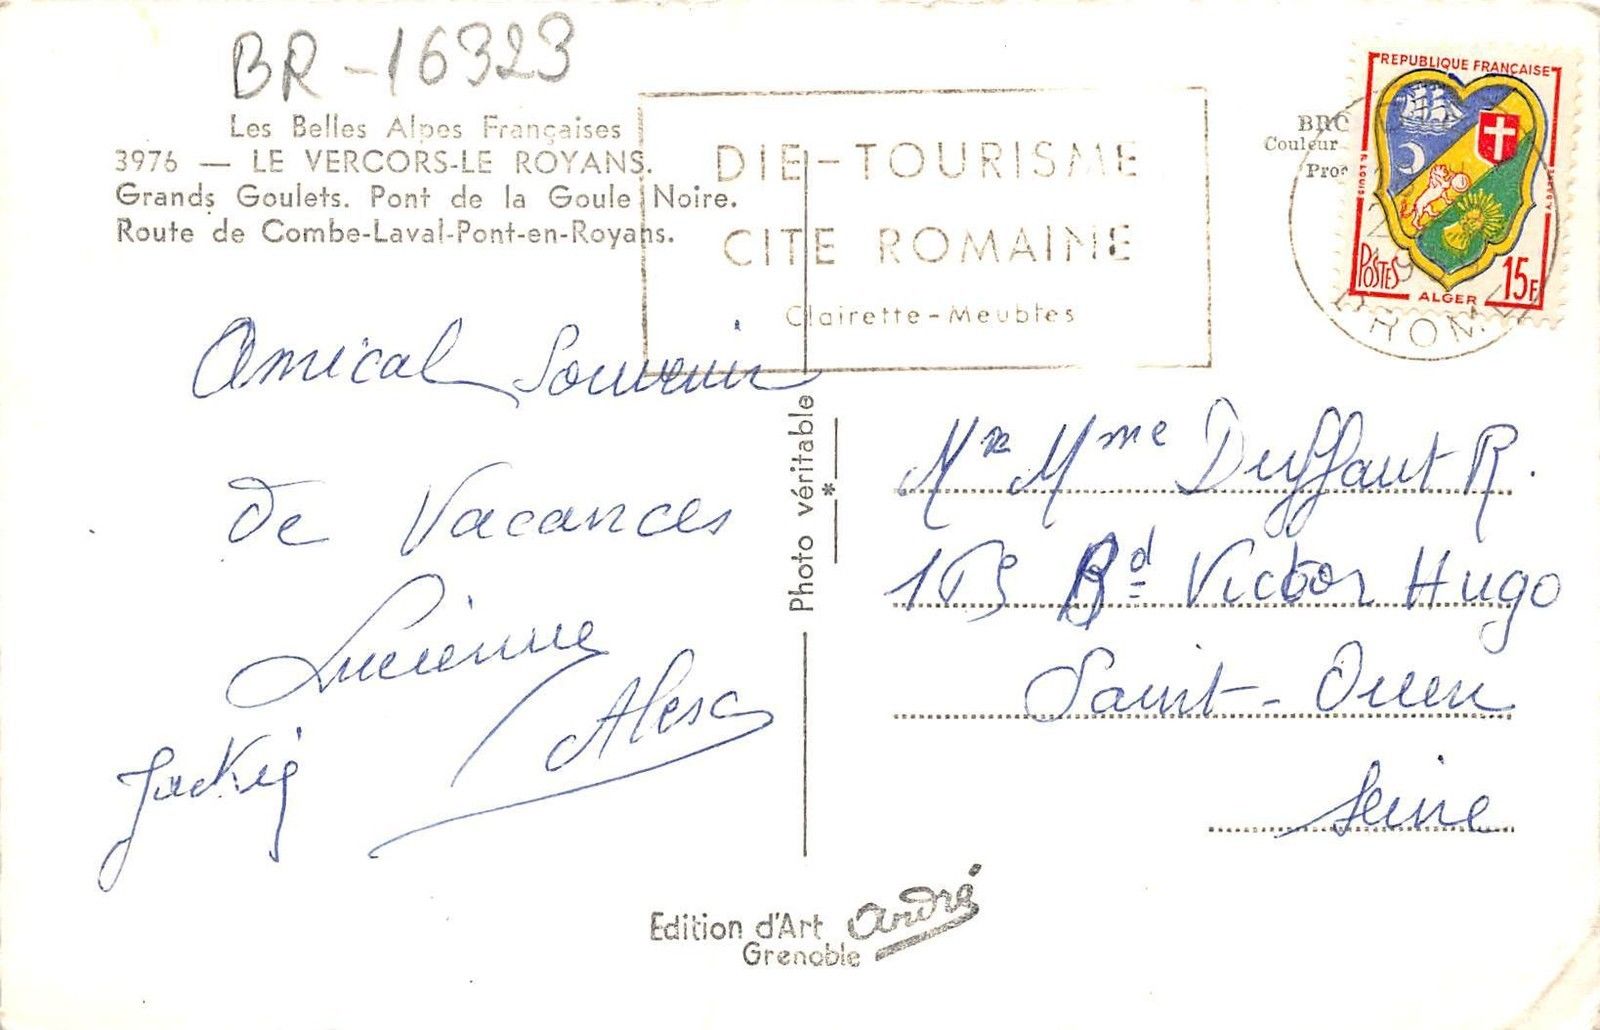 BR-16323
Les Belles Alpes Françaises
3976 — LE VERCORS-LE ROYANS.
Grands Goulets. Pont de la Goule Noire.
Route de Combe-Laval-Pont-en-Royans.
DIE-TOURISME
CITE ROMAINE
Clairette-Meubles
BRO
Couleur
Pro
REPUBLIQUE FRANÇAISE
POSTES
ALGER
15F
DROME
Amical Souvenir
de Vacances
Lucienne
Jackie
Photo véritable
*
Mr Mme Duffaut R.
Bd Victor Hugo
Saint-Ouen
Seine
Edition d'Art André
Grenoble